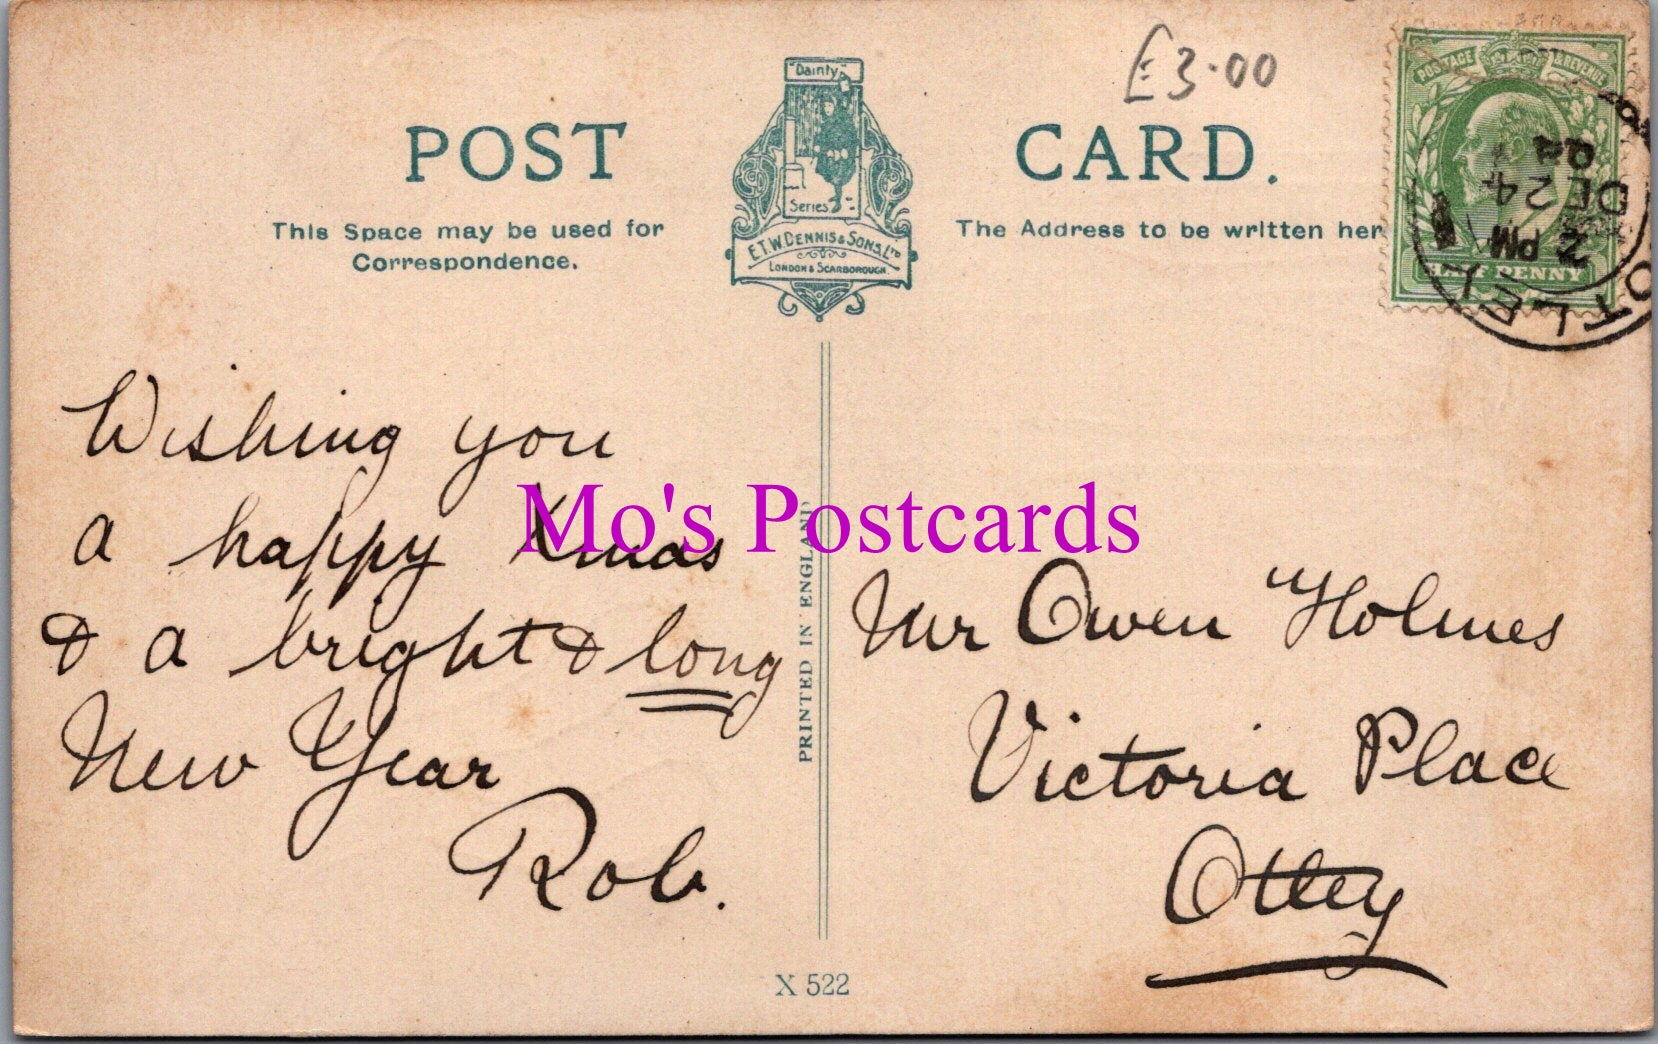 £3.00
POSTAGE & REVENUE
HALF PENNY
OTLEY
7 PM
DE 24
"Dainty"
Series
E.T.W. DENNIS & SONS, LTD
LONDON & SCARBOROUGH.
POST CARD.
This Space may be used for
Correspondence.
The Address to be written her
Wishing you
a happy Xmas
& a bright & long
New Year
Rob.
Mo's Postcards
PRINTED IN ENGLAND
Mr Owen Holmes
Victoria Place
Otley
X 522